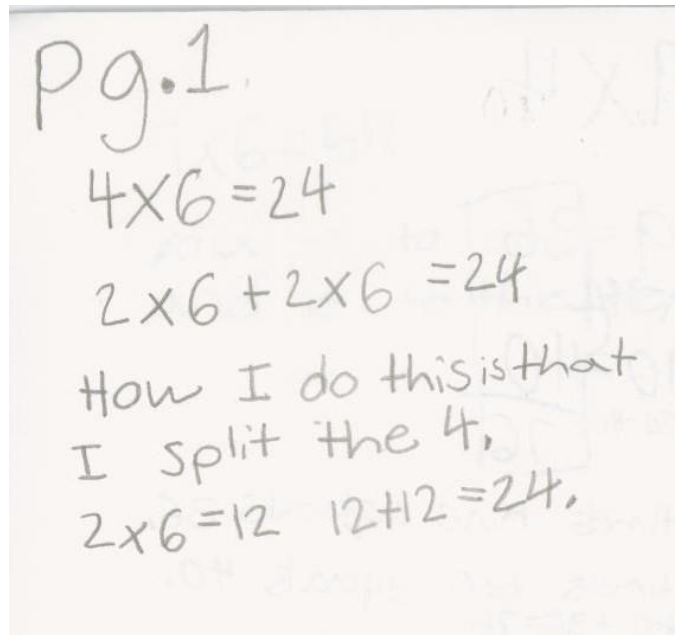 Pg.1.
4×6=24
2×6+2×6 =24
How I do this is that
I split the 4.
2×6=12 12+12=24.